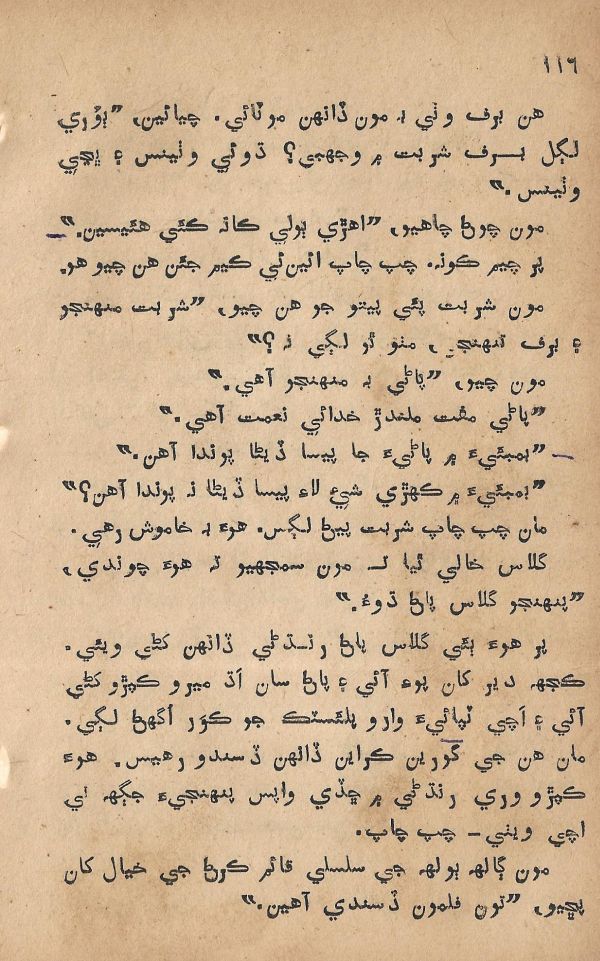 ١١٦
هن برف وٺي ۽ مون ڏانهن موٽائي. چيائين، ”ٻُوري
لڳل برف شربت ۾ وجهبي؟ ڌوئي وٺينس ۽ ڀڃي
وٺينس.“
مون چوڻ چاهيو، ”اهڙي ٻولي ڪانہ ڪئي هئيسين.“
پر چيم ڪونہ. چپ چاپ ائين ئي ڪيم جئن هن چيو هو.
مون شربت پئي پيتو جو هن چيو، ”شربت منهنجو
۽ برف تنهنجي، مٺو ٿو لڳي نہ؟“
مون چيو، ”پاڻي بہ منهنجو آهي.“
”پاڻي مفت ملندڙ خدائي نعمت آهي.“
”بمبئيءَ ۾ پاڻيءَ جا پيسا ڏيڻا پوندا آهن.“
”بمبئيءَ ۾ ڪهڙي شيءِ لاءِ پيسا ڏيڻا نہ پوندا آهن؟“
مان چپ چاپ شربت پيئڻ لڳس. هوءَ بہ خاموش رهي.
گلاس خالي ٿيا تہ مون سمجهيو تہ هوءَ چوندي،
”پنهنجو گلاس پاڻ ڌوءُ.“
پر هوءَ ٻئي گلاس پاڻ رنڌڻي ڏانهن کڻي ويئي.
ڪجهہ دير کان پوءِ آئي ۽ پاڻ سان اَڌ ميرو ڪپڙو کڻي
آئي ۽ اَچي ٽپائيءَ وارو پلئسٽڪ جو ڪوَر اُگهڻ لڳي.
مان هن جي گورين ڪراين ڏانهن ڏسندو رهيس. هوءَ
ڪپڙو وري رنڌڻي ۾ ڇڏي واپس پنهنجيءَ جڳهہ تي
اچي ويٺي ـ چپ چاپ.
مون ڳالهہ ٻولهہ جي سلسلي قائم ڪرڻ جي خيال کان
پڇيو، ”تون فلمون ڏسندي آهين.“